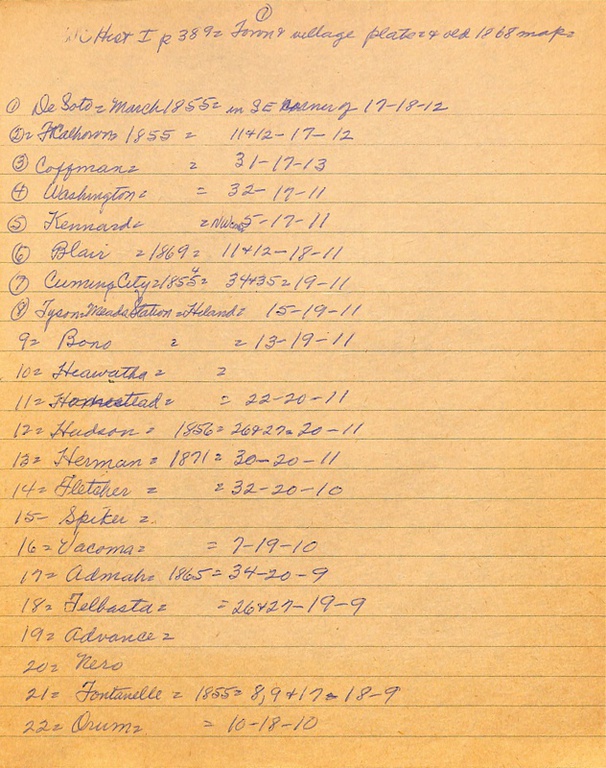 ①
Hist I p 389 = Town & village plats = & old 1868 map =
① De Soto = March 1855 = in SE corner of 17-18-12
② = Ft Calhoun 1855 = 11+12-17-12
③ Coffman = = 31-17-13
④ Washington = = 32-17-11
⑤ Kennard = = 5-17-11
⑥ Blair = 1869 = 11+12-18-11
⑦ Cuming City = 1855 = 34+35 = 19-11
⑧ Tyson = Meads Station = Hiland = 15-19-11
9 = Bono = = 13-19-11
10 = Heawatha = =
11 = Homestead = = 22-20-11
12 = Hudson = 1856 = 26+27 = 20-11
13 = Herman = 1871 = 30-20-11
14 = Fletcher = = 32-20-10
15- Spiker =
16 = Vacoma = = 7-19-10
17 = Admah = 1865 = 34-20-9
18 = Telbasta = = 26+27-19-9
19 = Advance =
20 = Nero
21 = Fontanelle = 1855 = 8,9+17-18-9
22 = Orum = = 10-18-10